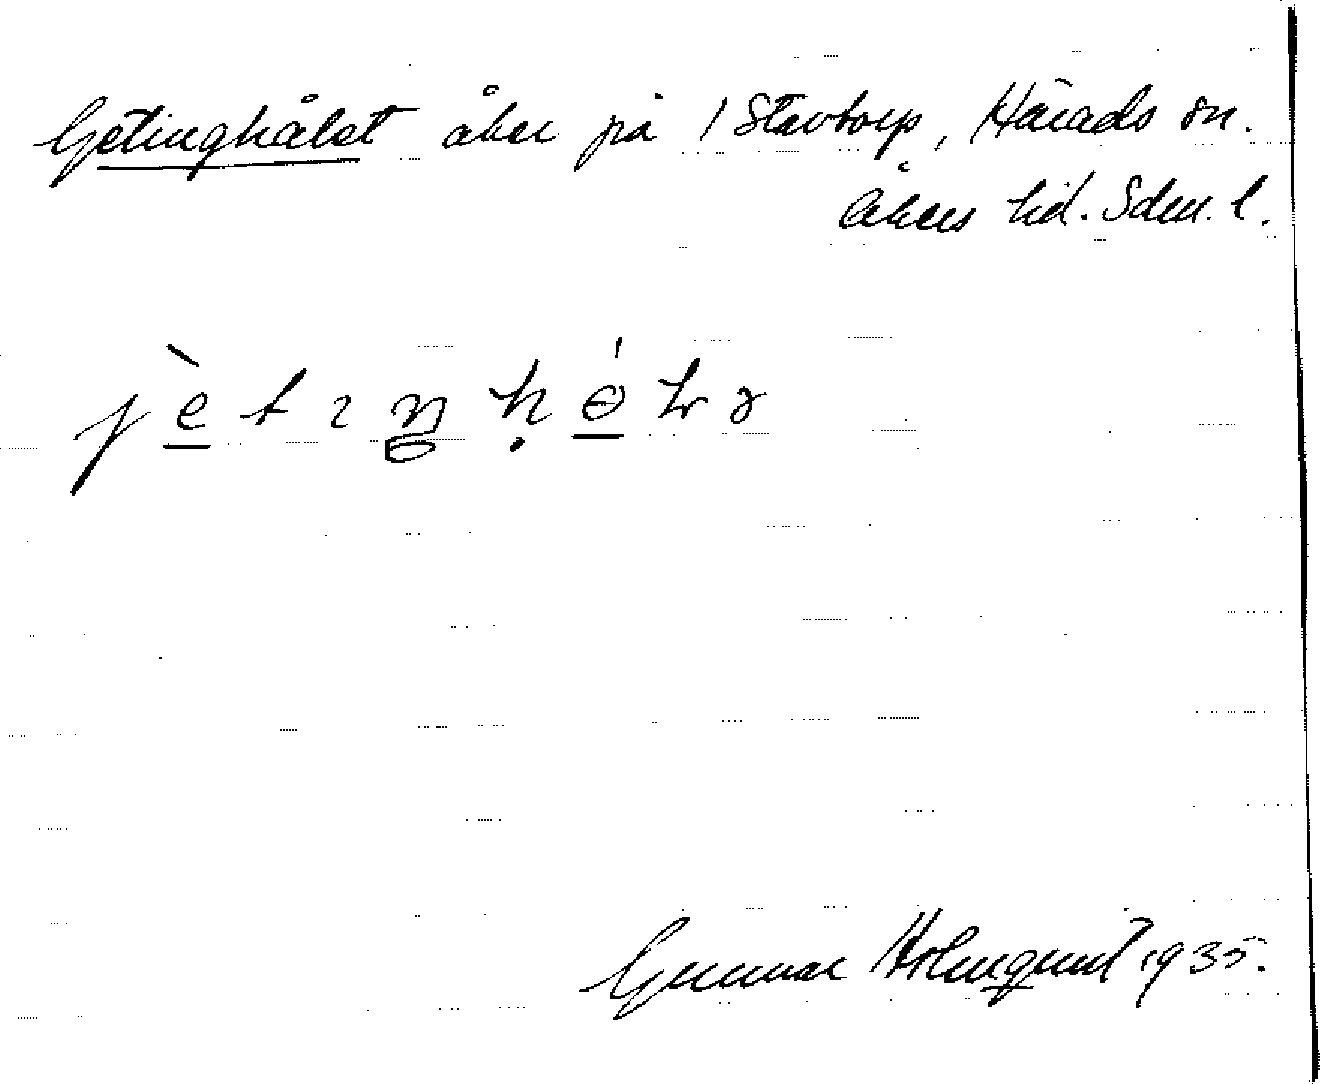 Getinghålet åker på 1 Stavtorp, Härads sn.
Åkers hd. Sdm. l.
Gunnar Holmquist 1935.